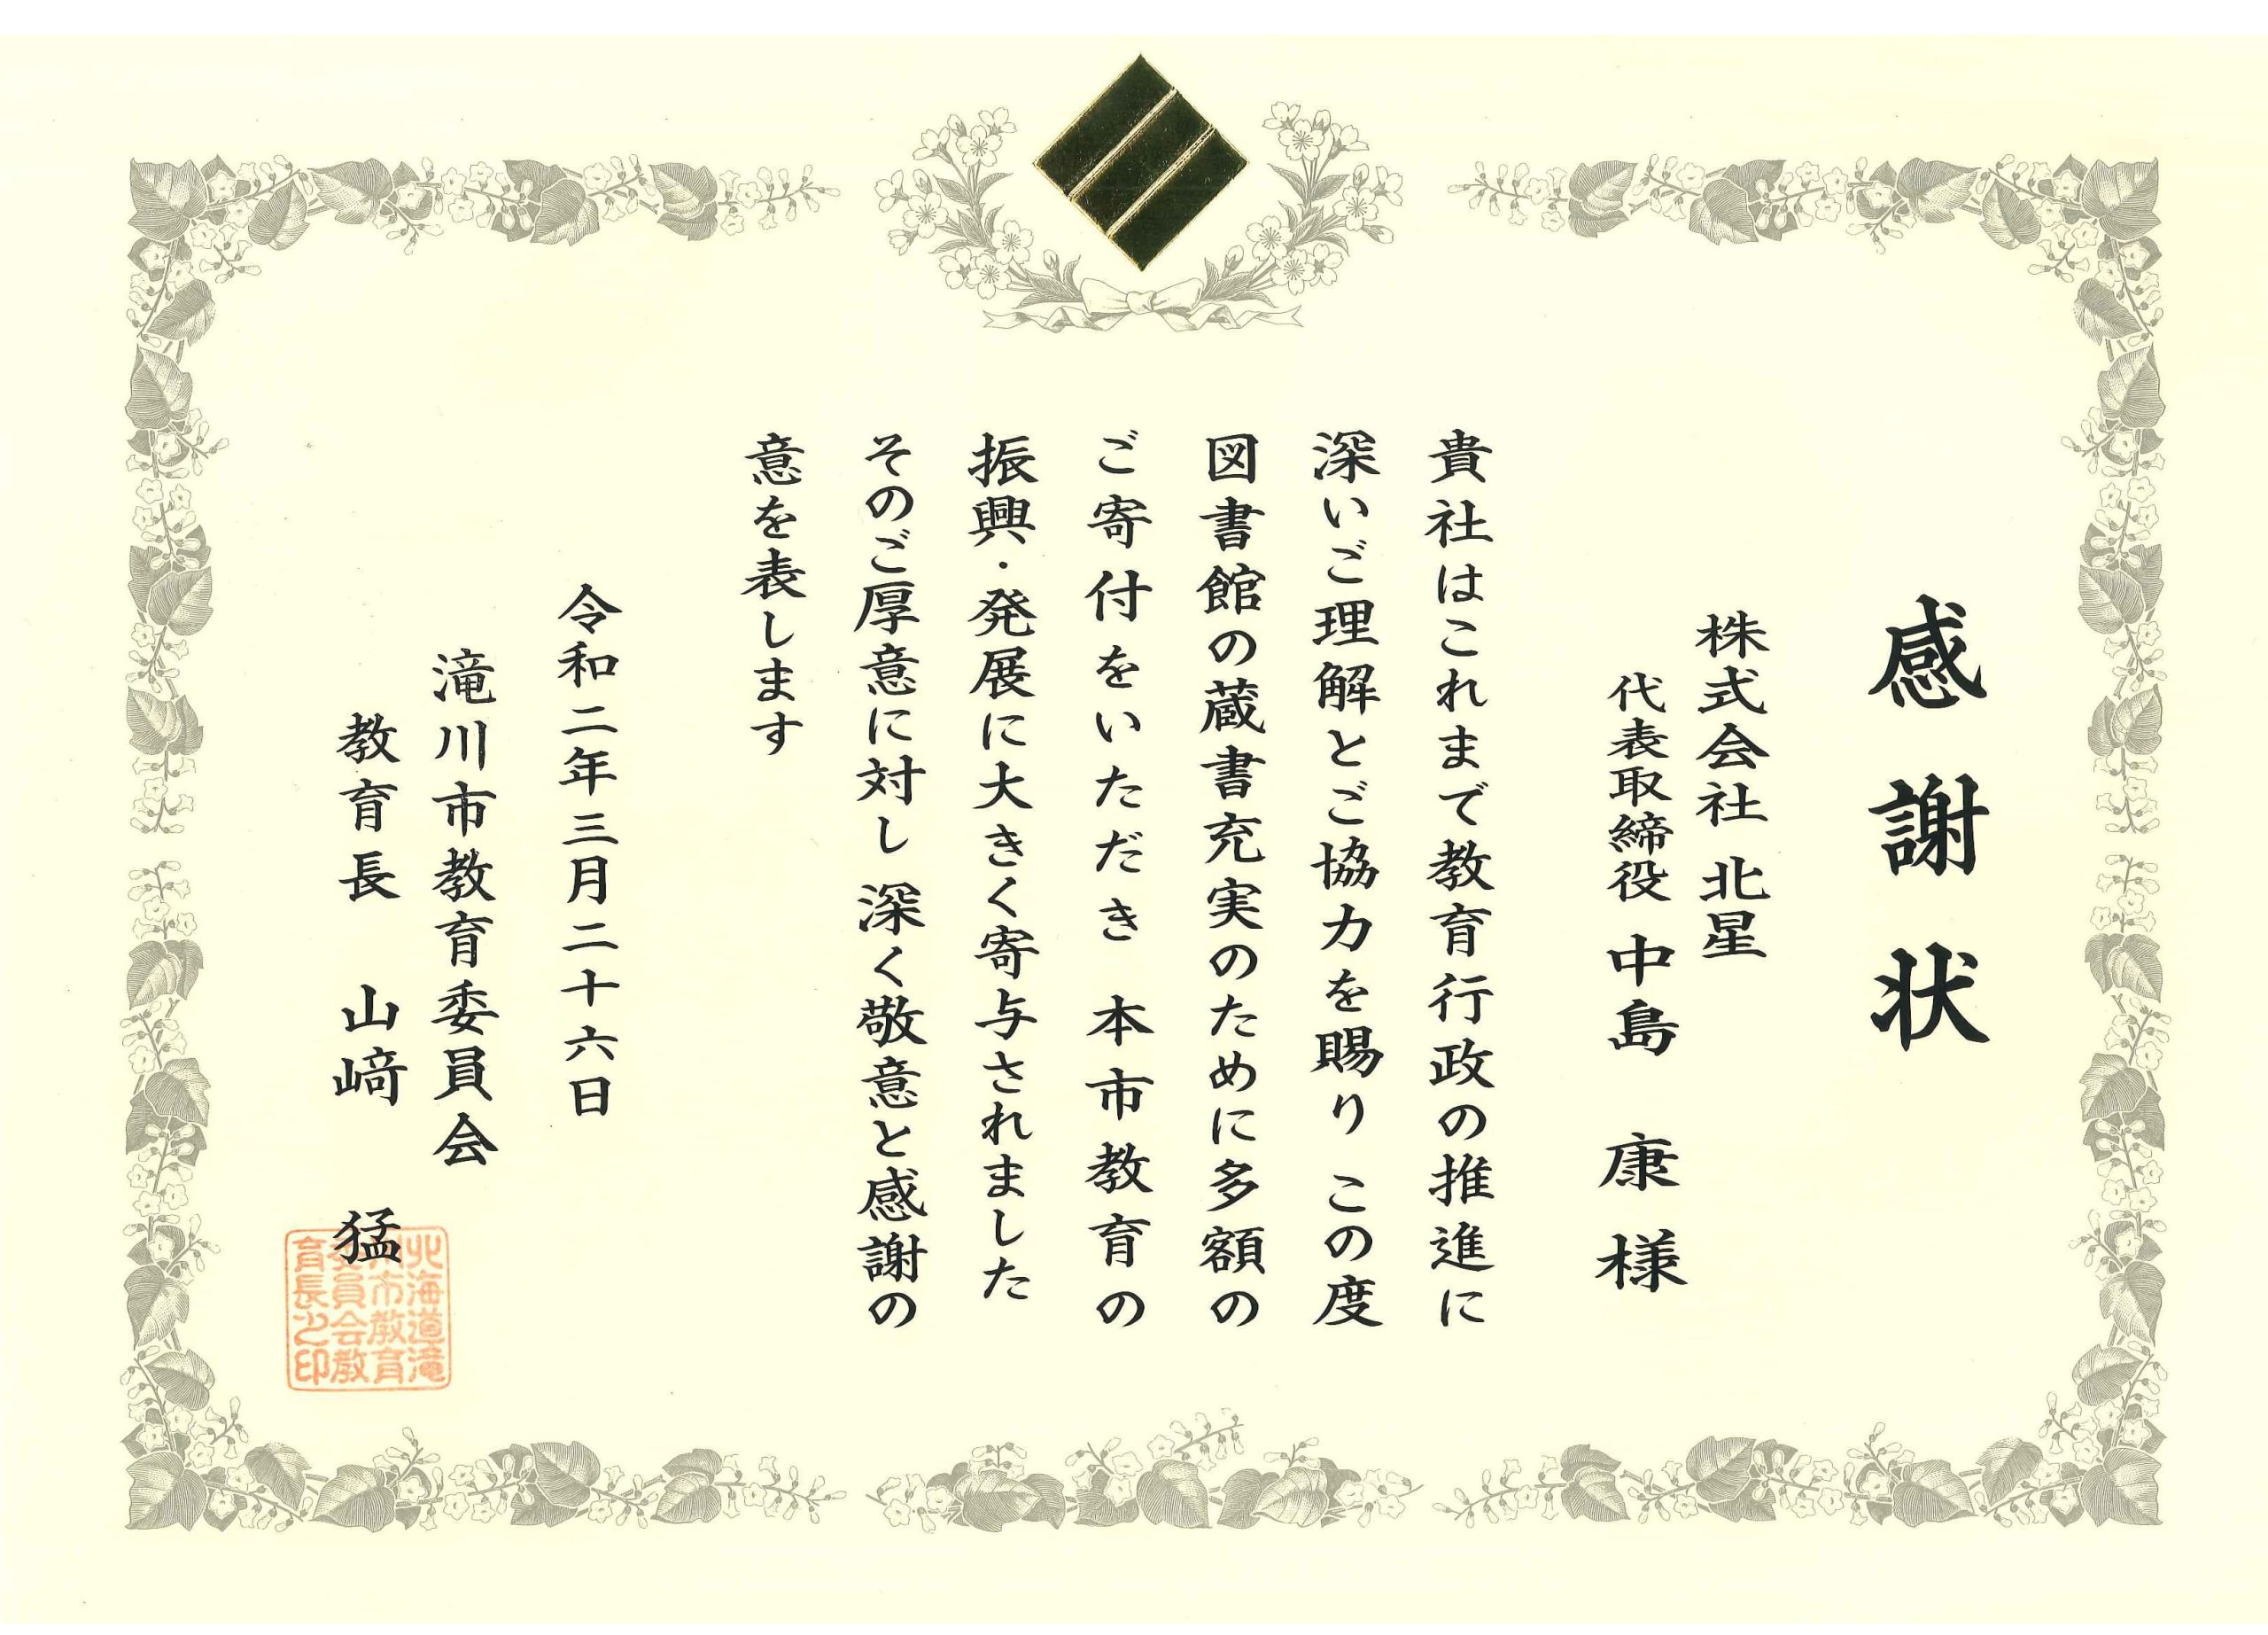 感謝状
株式会社 北星
代表取締役 中島 康 様
貴社はこれまで教育行政の推進に
深いご理解とご協力を賜り この度
図書館の蔵書充実のために多額の
ご寄付をいただき 本市教育の
振興・発展に大きく寄与されました
そのご厚意に対し 深く敬意と感謝の
意を表します
令和二年三月二十六日
滝川市教育委員会
教育長 山﨑 猛
北海道滝
川市教育
委員会教
育長之印